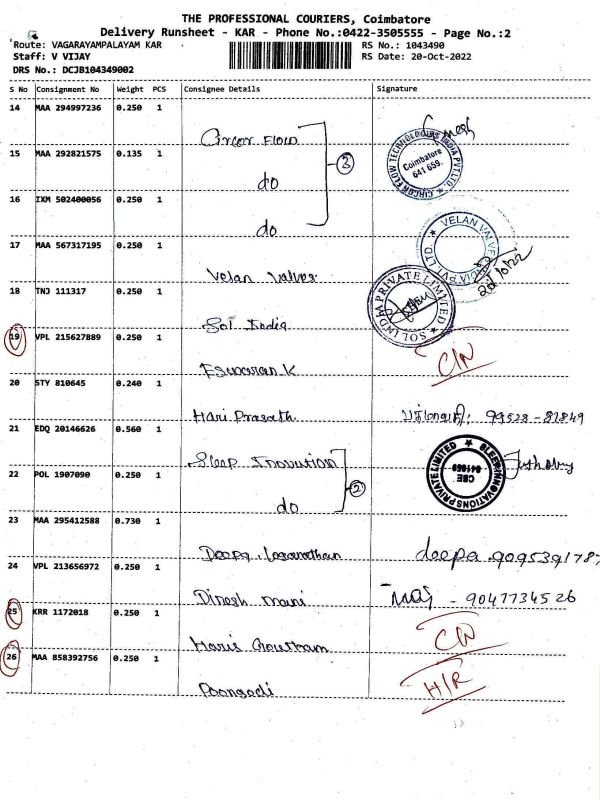 THE PROFESSIONAL COURIERS, Coimbatore
Delivery Runsheet - KAR - Phone No.:0422-3505555 - Page No.:2
Route: VAGARAYAMPALAYAM KAR RS No.: 1043490
Staff: V VIJAY RS Date: 20-Oct-2022
DRS No.: DCJB104349002
S No Consignment No Weight PCS Consignee Details Signature
14 MAA 294997236 0.250 1
Circor Flow
15 MAA 292821575 0.135 1
do
3
CIRCOR FLOW TECHNOLOGIES INDIA PVT LTD. Coimbatore 641 659.
16 IXM 502400056 0.250 1
do
17 MAA 567317195 0.250 1
Velan Valves
VELAN VALVES INDIA PVT LTD.
20/10/22
18 TNJ 111317 0.250 1
Sol India
SOL INDIA PRIVATE LIMITED
19 VPL 215627889 0.250 1
K
20 STY 810645 0.240 1
Hari Prasath 99528 - 81849
21 EDQ 20146626 0.560 1
Sleep Inovution
SLEEP INNOVATIONS PRIVATE LIMITED CBE 641659
22 POL 1907090 0.250 1
do
2
23 MAA 295412588 0.730 1
Deepa deepa 9095391787
24 VPL 213656972 0.250 1
Dinesh Mani - 9047734526
25 KRR 1172018 0.250 1
Haris Goutham
26 MAA 858392756 0.250 1
Poongodi